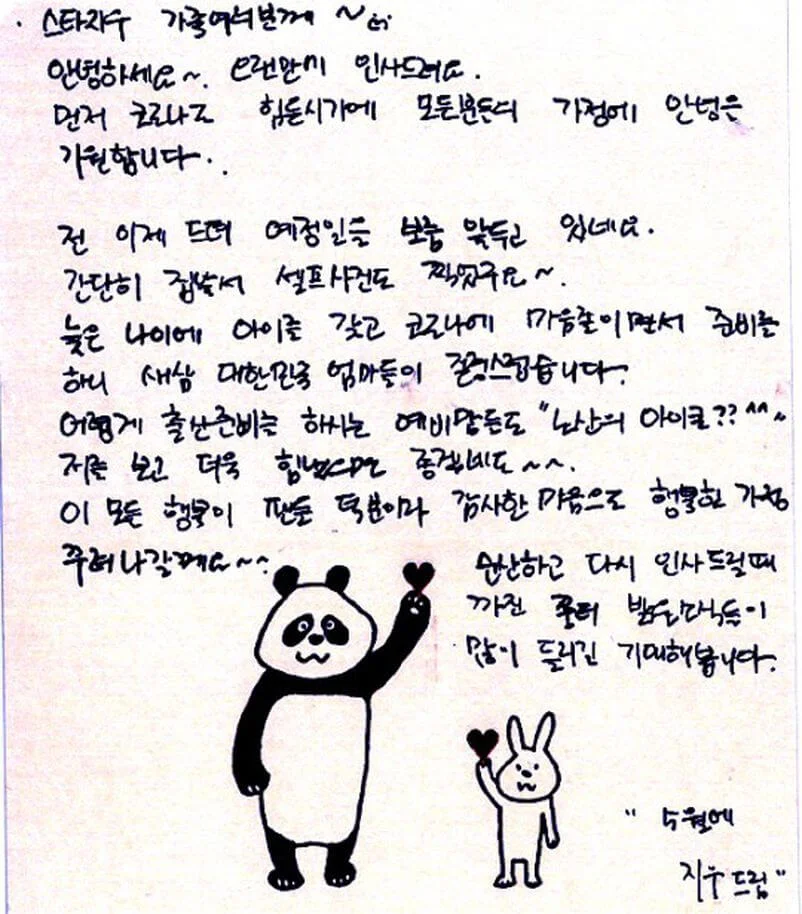 스타지우 가족여러분께 ~
안녕하세요~. 오랜만이 인사드려요.
먼저 코로나로 힘든시기에 모든분들의 가정에 안녕을
기원합니다.
전 이제 드뎌 예정일을 보름 앞두고 있네요.
간단히 집앞서 셀프사진도 찍었구요~.
늦은 나이에 아이를 갖고 코로나에 마음졸이면서 준비를
하니 새삼 대한민국 엄마들이 존경스럽습니다.
어렵게 출산준비를 하시는 예비맘들도 "노산의 아이콘?? ^^~
저를 보고 더욱 힘냈으면 좋겠네요~~.
이 모든 행복이 팬들 덕분이라 감사한 마음으로 행복한 가정
꾸려나갈께요~~.
순산하고 다시 인사드릴때
까진 밝은소식들이
많이 들리길 기대해봅니다.
"4월에
지우 드림"